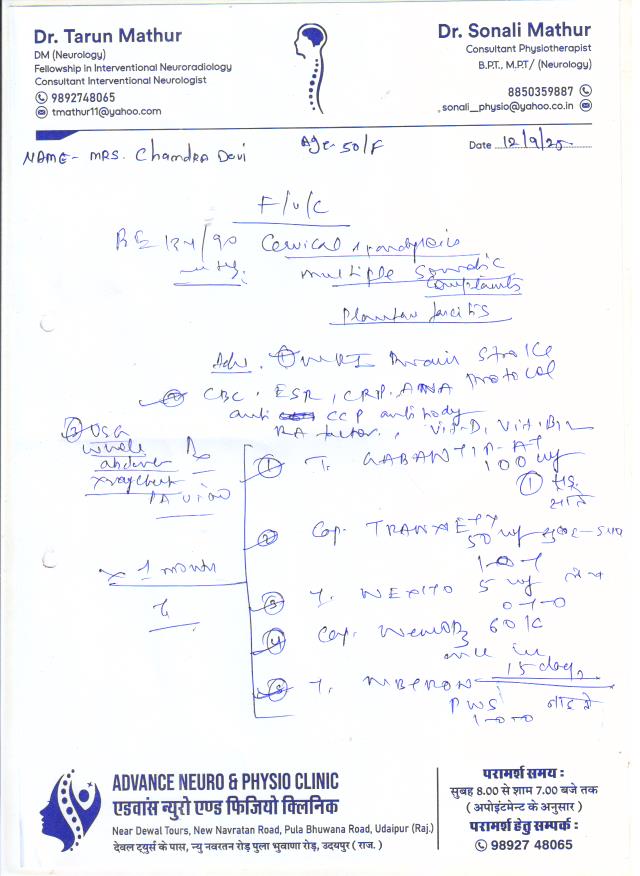 Dr. Tarun Mathur
DM (Neurology)
Fellowship in Interventional Neuroradiology
Consultant Interventional Neurologist
9892748065
tmathur11@yahoo.com
Dr. Sonali Mathur
Consultant Physiotherapist
B.P.T., M.P.T/ (Neurology)
8850359887
sonali_physio@yahoo.co.in
NAME- MRS. Chandra Devi Age-50/F Date 12/9/25
F/U/C
134/90 Cervical spondylosis
multiple Somatic
Complaints
Plantar fascitis
Adv. ① MRI Brain Stroke
protocol
② CBC, ESR, CRP, ANA
anti CCP antibody
RA factor, Vit-D, Vit-B12
③ USG
whole
abdomen
xray chest
PA view
① T. GABANTIP-AT
100 mg
①
② Cap.
50 mg
1-0-1
x 1 month
③ T. NEXITO 5 mg
0-1-0
④ Cap. 60K
once in
15 days
⑤ T.
1-0-0
ADVANCE NEURO & PHYSIO CLINIC
एडवांस न्युरो एण्ड फिजियो क्लिनिक
Near Dewal Tours, New Navratan Road, Pula Bhuwana Road, Udaipur (Raj.)
देवल ट्युर्स के पास, न्यु नवरतन रोड़ पुला भुवाणा रोड़, उदयपुर ( राज. )
परामर्श समय :
सुबह 8.00 से शाम 7.00 बजे तक
( अपोइंटमेन्ट के अनुसार )
परामर्श हेतु सम्पर्क :
98927 48065